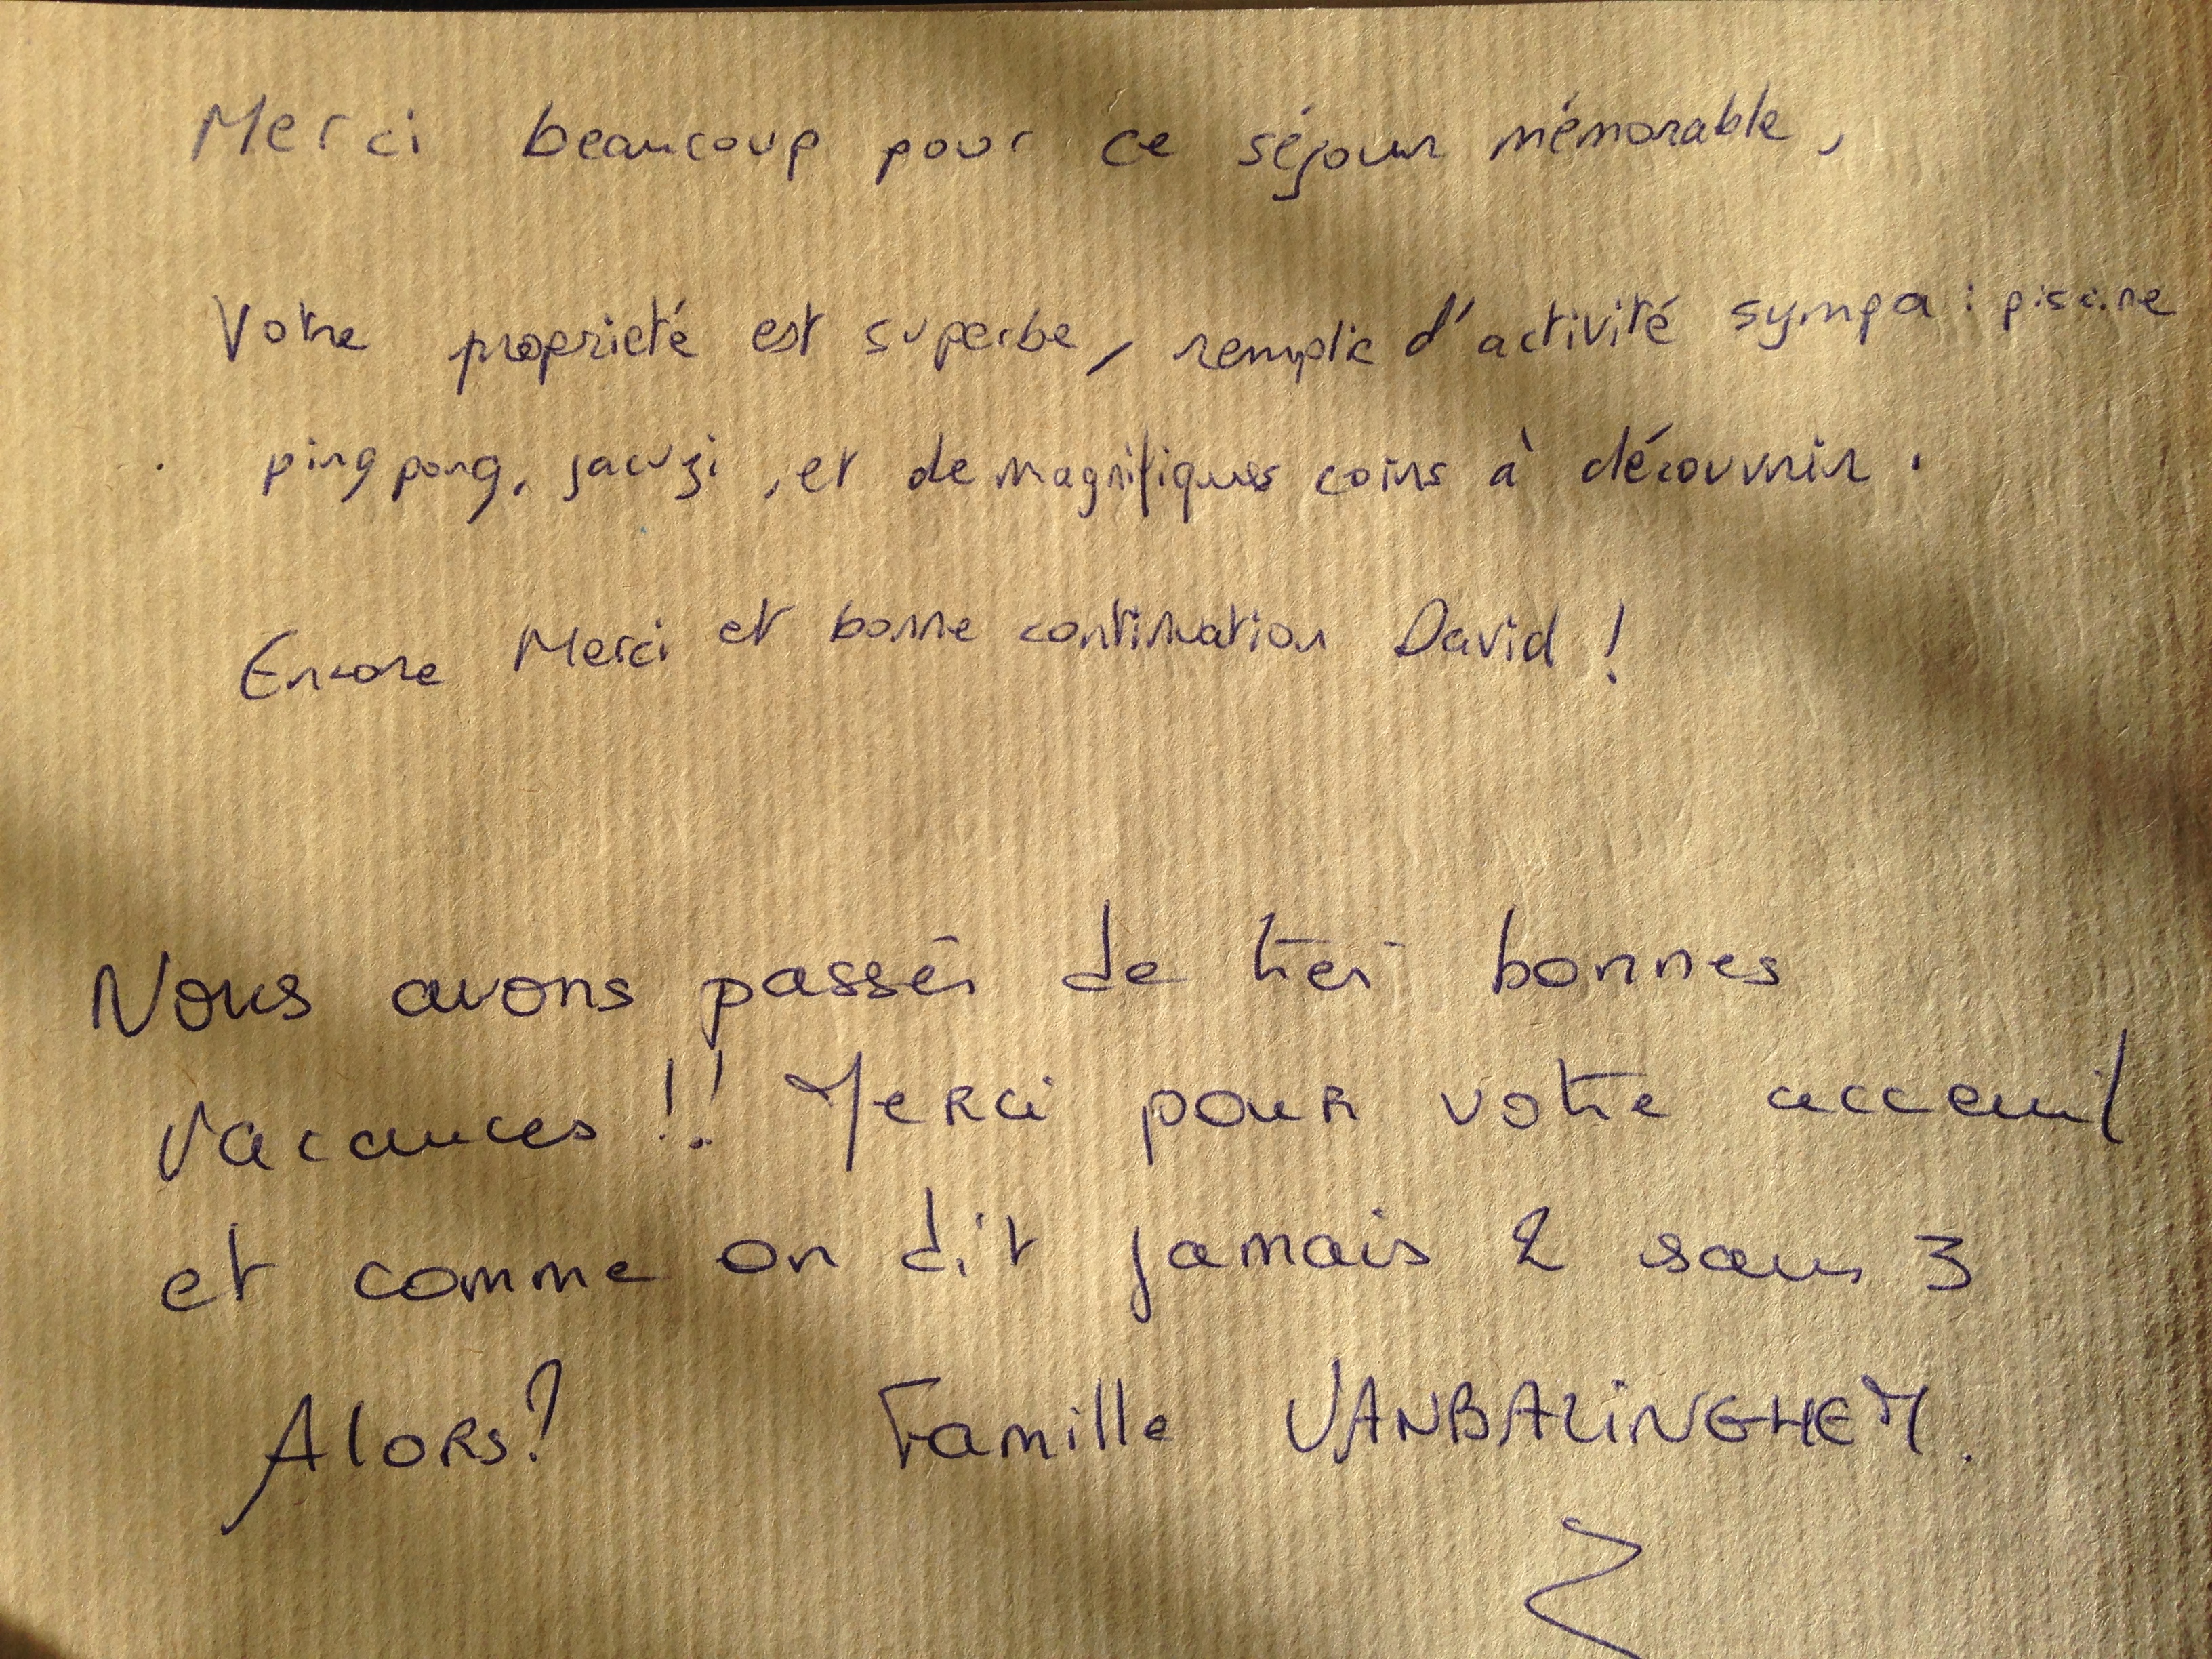 Merci beaucoup pour ce séjour mémorable,
Votre proprieté est superbe, remplie d'activité sympa : piscine
ping pong, jacuzi, et de magnifiques coins à découvrir.
Encore Merci et bonne continuation David !
Nous avons passés de très bonnes
vacances !! Merci pour votre acceuil
et comme on dit jamais 2 sans 3
Alors ? Famille VANBALINGHEM.